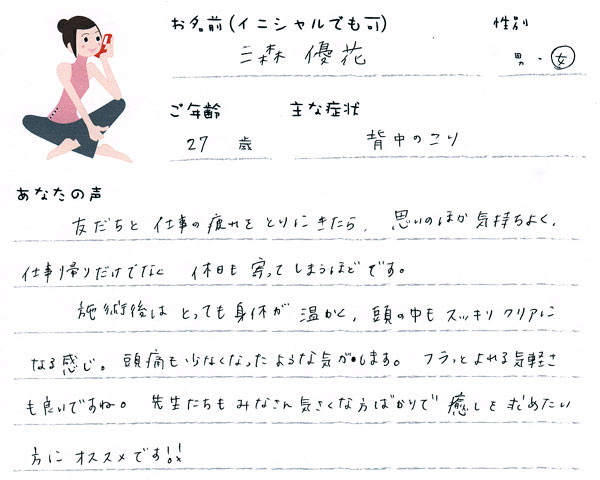 お名前(イニシャルでも可) 性別
二森 優花 男・女
ご年齢 主な症状
27 歳 背中のこり
あなたの声
友だちと仕事の疲れをとりにきたら、思いのほか気持ちよく、
仕事帰りだけでなく 休日も寄ってしまうほどです。
施術後はとっても身体が温かく、頭の中もスッキリクリアに
なる感じ。頭痛も少なくなったような気がします。フラッとよれる気軽さ
も良いですね。先生たちもみなさん気さくな方ばかりで癒しを求めたい
方にオススメです!!